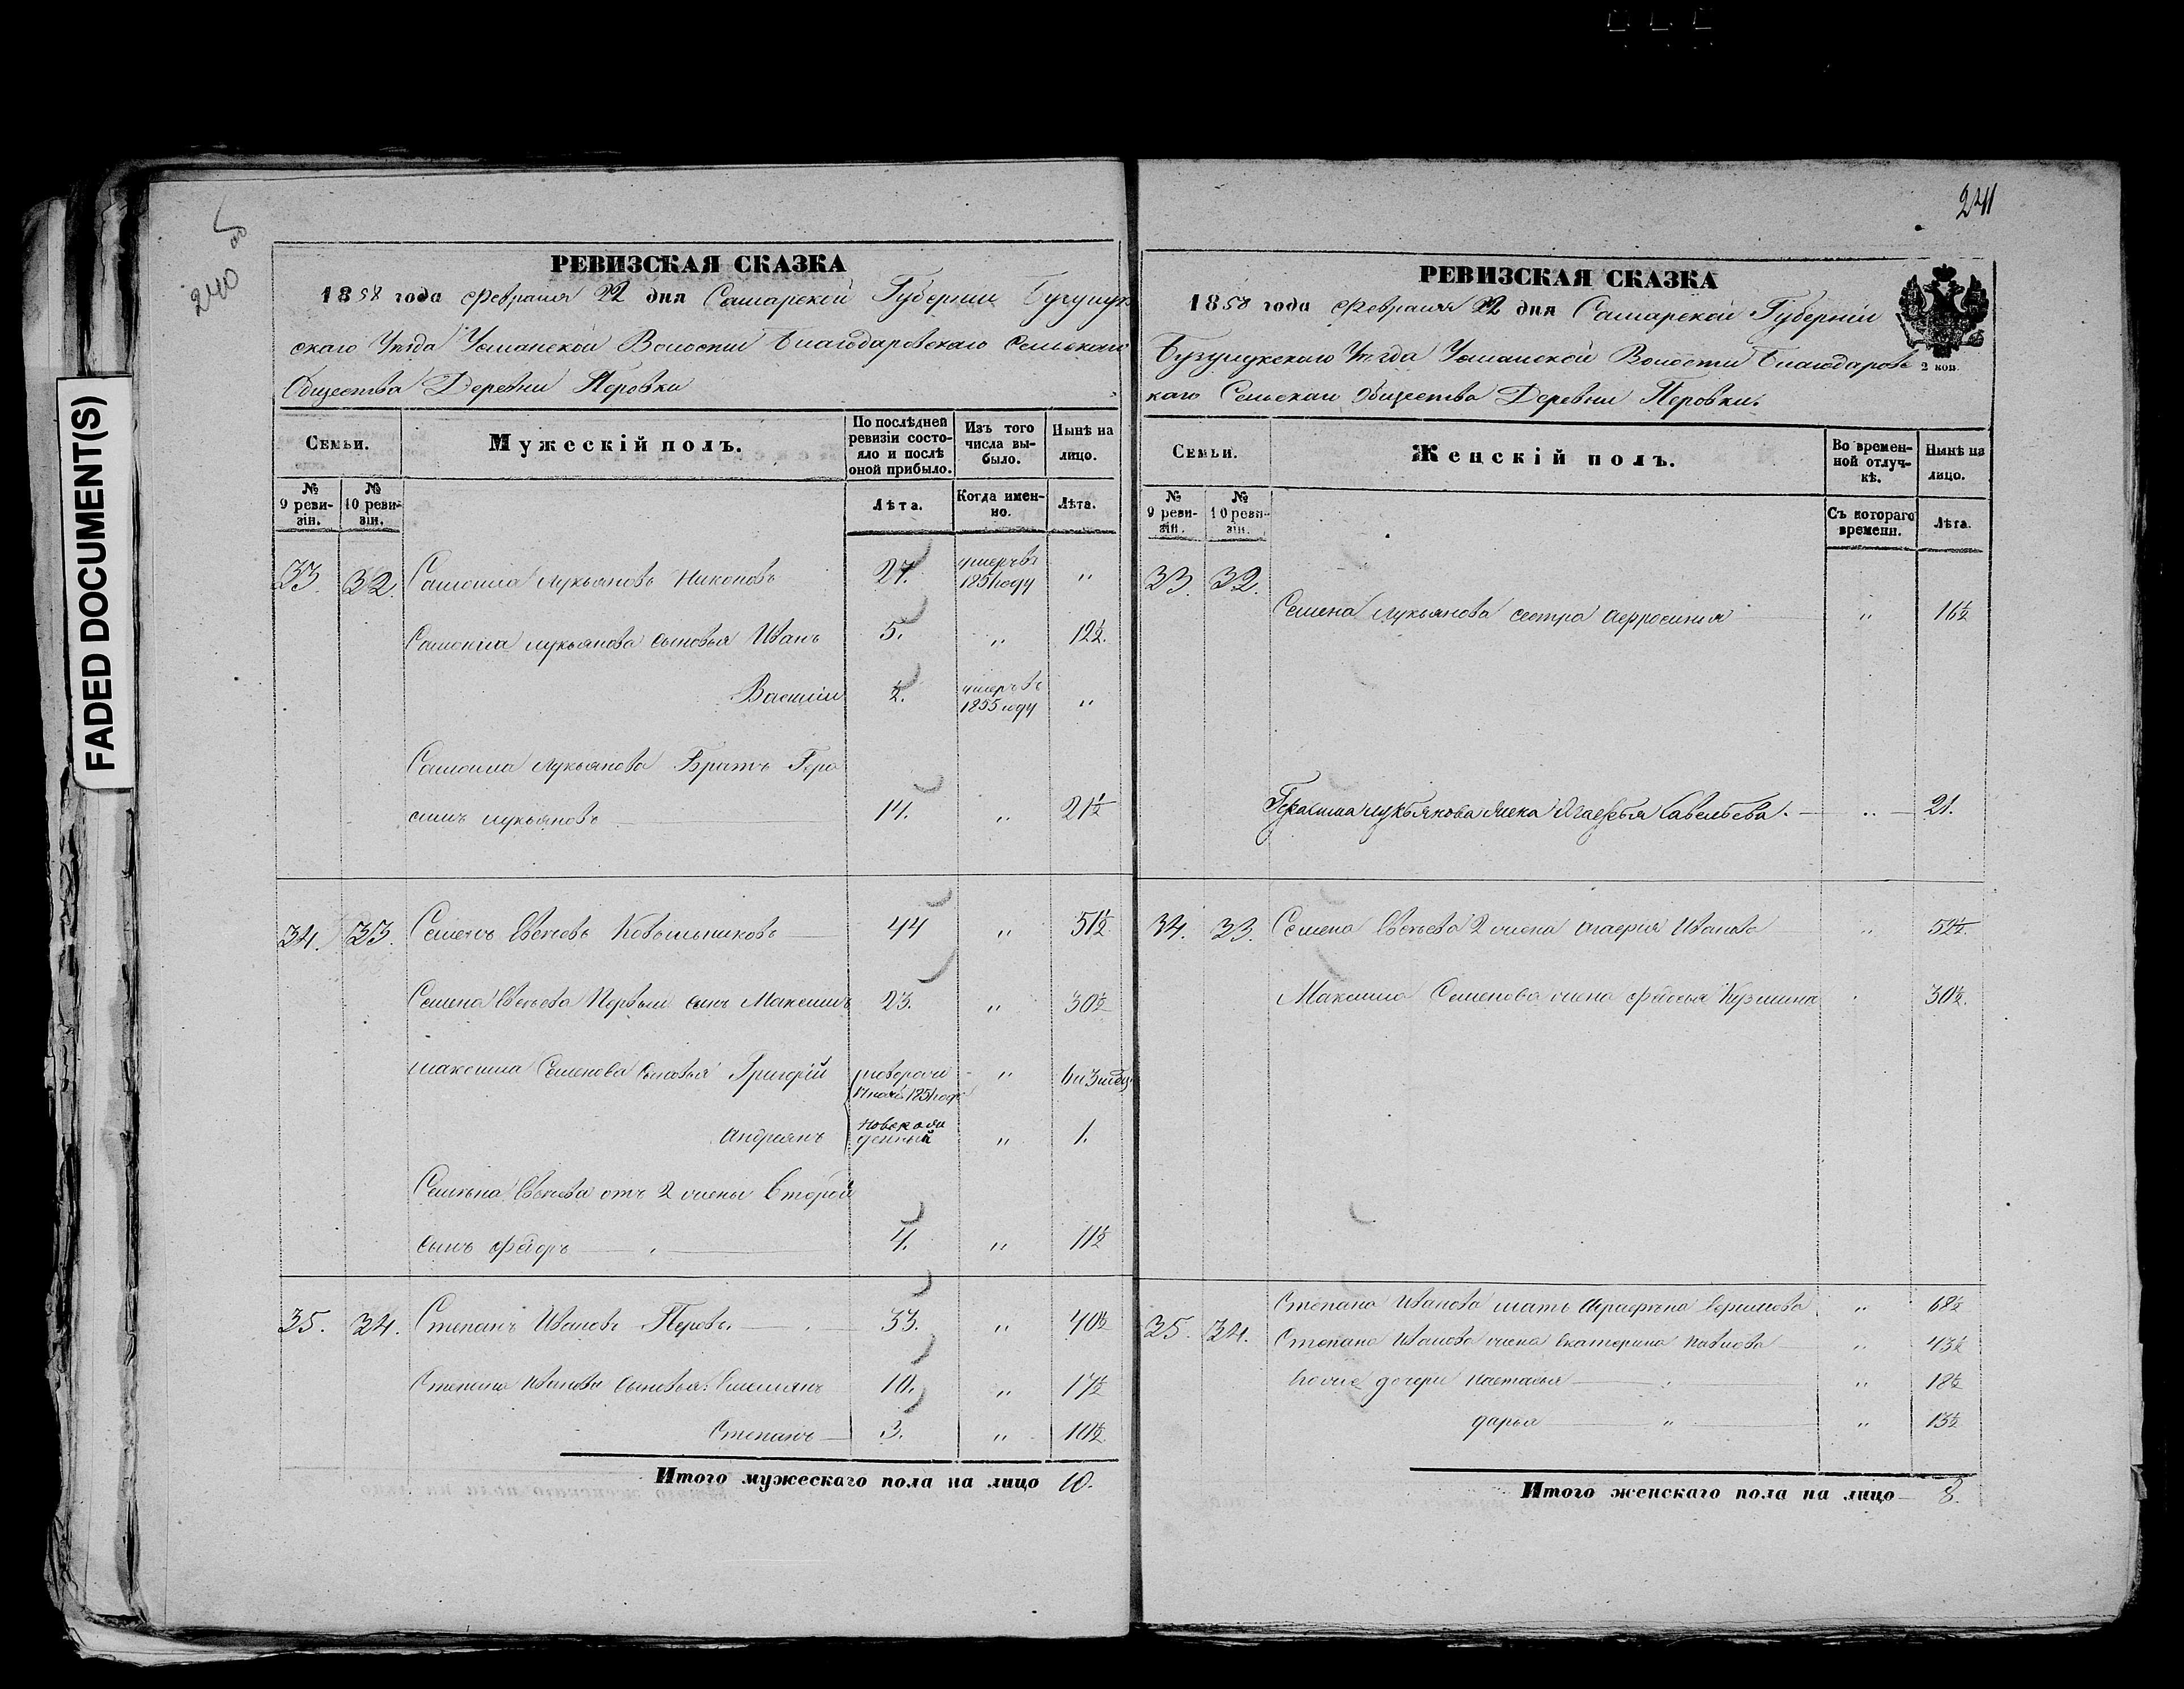 FADED DOCUMENT(S)
240
об
РЕВИЗСКАЯ СКАЗКА
1858 года Февраля 22 дня Самарской Губернии Бузулук
скаго Уѣзда Усманской Волости Благодаровскаго Сельскаго
Общества Деревни Перовки
Семьи.
Мужескій полъ.
По послѣдней ревизіи состояло и послѣ оной прибыло.
Изъ того числа выбыло.
Нынѣ на лицо.
№ 9 ревизіи.
№ 10 ревизіи.
Лѣта.
Когда именно.
Лѣта.
33. 32. Самоила Лукьяновъ Никоновъ 27. умеръ въ 1851 году "
Самоила Лукьянова сыновья Иванъ 5. " 12½.
Василій ½. умеръ въ 1855 году "
Самоила Лукьянова Братъ Гера
симъ Лукьяновъ 14. " 21½
34. 33. Семенъ Евсѣевъ Ковыльниковъ 44 " 51½
Семена Евсѣева Первый сынъ Максимъ 23. " 30½
Максима Семенова сыновья Григорій 1851 года " 6 и 3 мѣсц.
Андреянъ новорожденный " 1.
Семена Евсѣева отъ 2 жены второй
сынъ Федоръ 4. " 11½
35. 34. Степанъ Ивановъ Перовъ. 33. " 40½
Степана Иванова сыновья: Емельянъ 10. " 17½
Степанъ 3. " 10½
Итого мужескаго пола на лицо 10.
241
РЕВИЗСКАЯ СКАЗКА
1858 года Февраля 22 дня Самарской Губерніи
Бузулукскаго Уѣзда Усманской Волости Благодаровс
каго Сельскаго Общества Деревни Перовки.
2 коп.
Семьи.
Женскій полъ.
Во временной отлучкѣ.
Нынѣ на лицо.
№ 9 ревизіи.
№ 10 ревизіи.
Съ котораго времени.
Лѣта.
33. 32.
Семена Лукьянова сестра Афросинья " 16½
Герасима Лукьянова жена Агафья Савельева. " 21.
34. 33. Семена Евсѣева 2 жена Иванова " 52½.
Максима Семенова жена Кузмина 30½.
Степана Иванова мать " 68½
35. 34. Степана Иванова жена Екатерина Павлова " 43½
дочери Настасья " 18½
Дарья " " 13½
Итого женскаго пола на лицо 8.